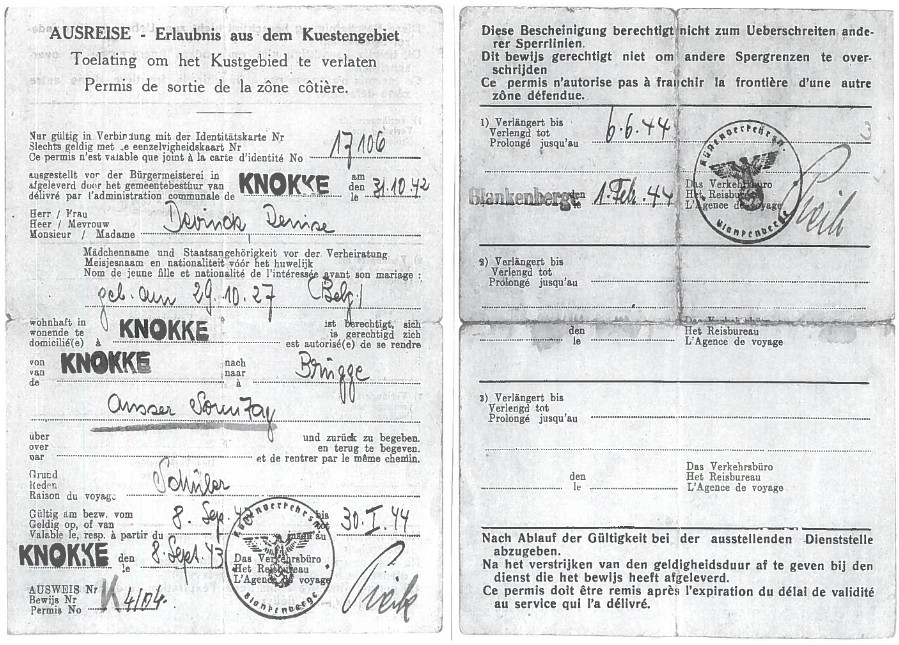 AUSREISE - Erlaubnis aus dem Kuestengebiet
Toelating om het Kustgebied te verlaten
Permis de sortie de la zône côtière.
Nur gültig in Verbindung mit der Identitätskarte Nr
Slechts geldig met de eenzelvigheidskaart Nr
Ce permis n'est valable que joint à la carte d'identité No 17106
ausgestellt vor der Bürgermeisterei in
afgeleverd door het gemeentebesthur van KNOKKE am den 31.10.42
délivré par l'administration communale de le
Herr / Frau
Heer / Mevrouw Devinck Denise
Monsieur / Madame
Mädchenname und Staatsangehörigkeit vor der Verheiratung.
Meisjesnaam en nationaliteit vóór het huwelijk
Nom de jeune fille et nationalité de l'intéressée avant son mariage :
geb. am 29.10.27 (Belg.)
wohnhaft in ist berechtigt, sich
wonende te KNOKKE is gerechtigd zich
domicilié(e) à est autorisé(e) de se rendre
von nach
van KNOKKE naar Brügge
de à
ausser Sonntag
über und zurück zu begeben.
over en terug te begeven.
par et de rentrer par le même chemin.
Grund
Reden Schüler
Raison du voyage
Gültig am bezw. vom bis
Geldig op, of van 8. Sep. 43 tot 30.I.44
Valable le, resp. à partir du jusqu'au
KNOKKE den 8 Sept. 43 Das Verkehrsbüro
le Het Reisbureau
L'Agence de voyage
Blankenberge
AUSWEIS Nr
Bewijs Nr K 4104
Permis No
Diese Bescheinigung berechtigt nicht zum Ueberschreiten ande-
rer Sperrlinien.
Dit bewijs gerechtigt niet om andere Spergrenzen te over-
schrijden
Ce permis n'autorise pas à franchir la frontière d'une autre
zône défendue.
1) Verlängert bis
Verlengd tot 6.6.44
Prolongé jusqu'au
Blankenberge den 1. Feb. 44 Das Verkehrsbüro
le Het Reisbureau
L'Agence de voyage
Blankenberge
2) Verlängert bis
Verlengd tot
Prolongé jusqu'au
Das Verkehrsbüro
den Het Reisbureau
le L'Agence de voyage
3) Verlängert bis
Verlengd tot
Prolongé jusqu'au
Das Verkehrsbüro
den Het Reisbureau
le L'Agence de voyage
Nach Ablauf der Gültigkeit bei der ausstellenden Dienststelle
abzugeben.
Na het verstrijken van den geldigheidsduur af te geven bij den
dienst die het bewijs heeft afgeleverd.
Ce permis doit être remis après l'expiration du délai de validité
au service qui l'a délivré.